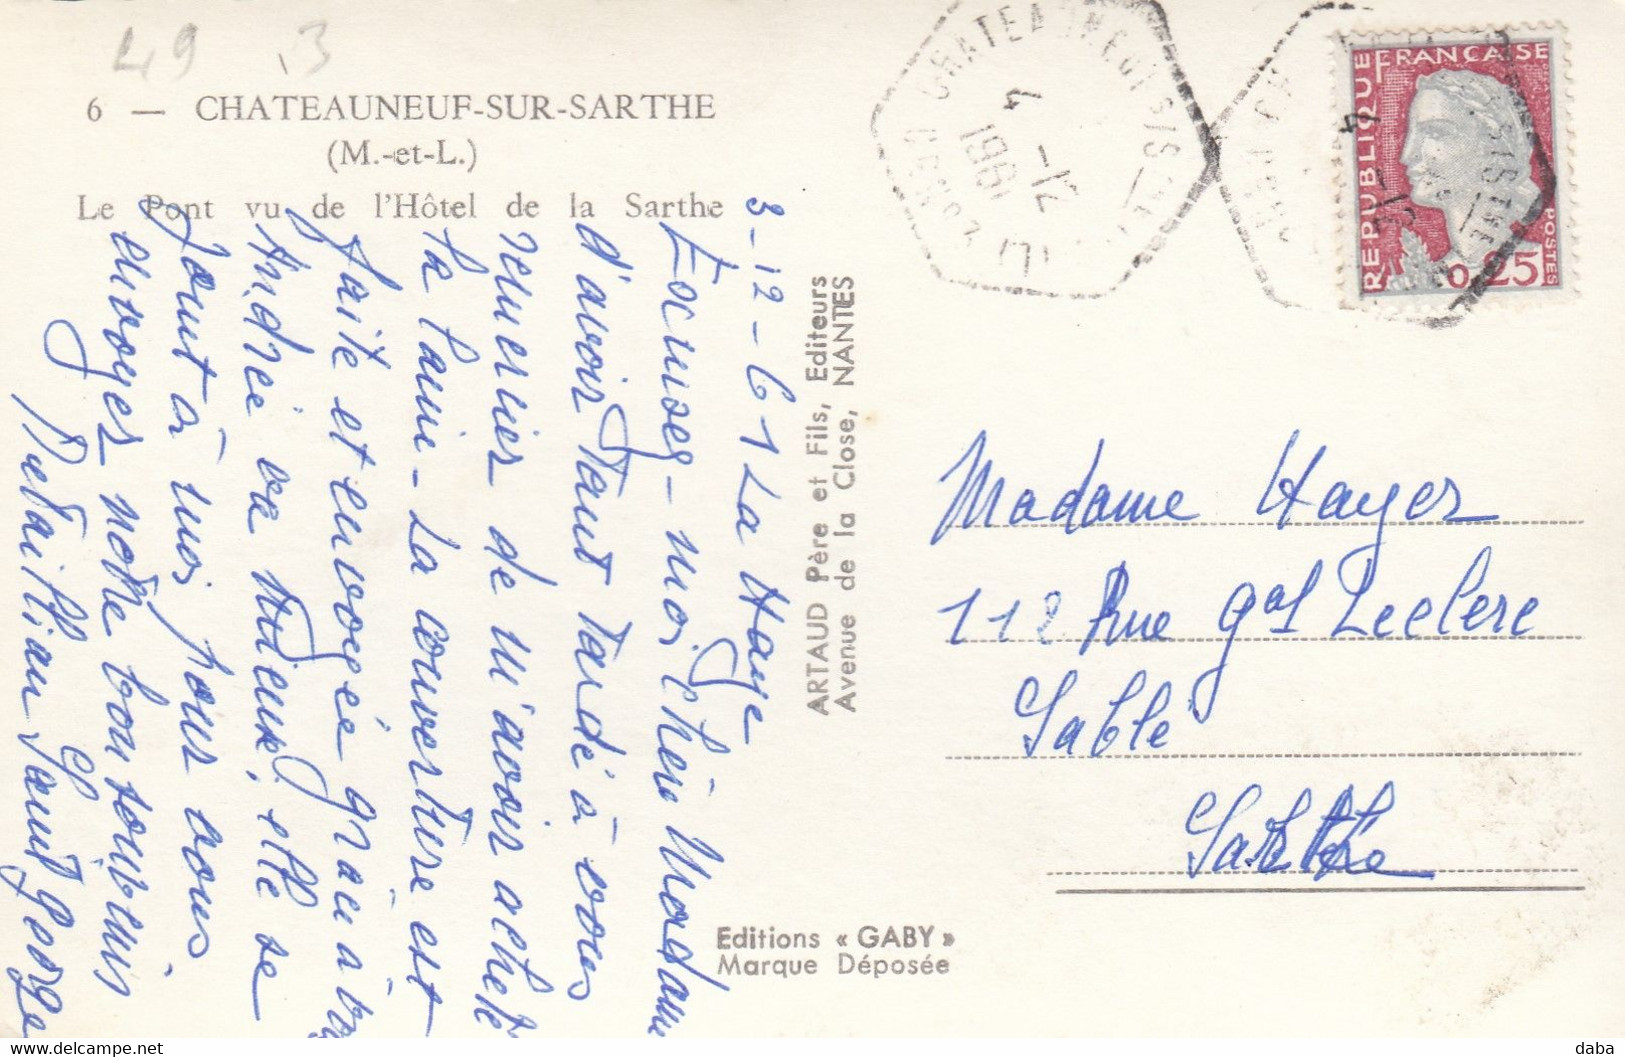 49 3
6 — CHATEAUNEUF-SUR-SARTHE
(M.-et-L.)
Le Pont vu de l'Hôtel de la Sarthe
3-12-61 La Haye
Excusez-moi chère Madame
d'avoir tant tardé à vous
remercier de m'avoir acheté
la laine - La couverture est
faite et envoyée grâce à vous
Andrée va mieux, elle se
joint à moi pour vous
envoyer notre bon souvenir
Saint georges
ARTAUD Père et Fils, Editeurs
Avenue de la Close, NANTES
Editions « GABY »
Marque Déposée
CHATEAUNEUF S/S
4 -12
1961
RÉPUBLIQUE FRANÇAISE
0,25
POSTES
Madame Hayer
112 Rue gal Leclerc
Sablé
Sarthe
daba